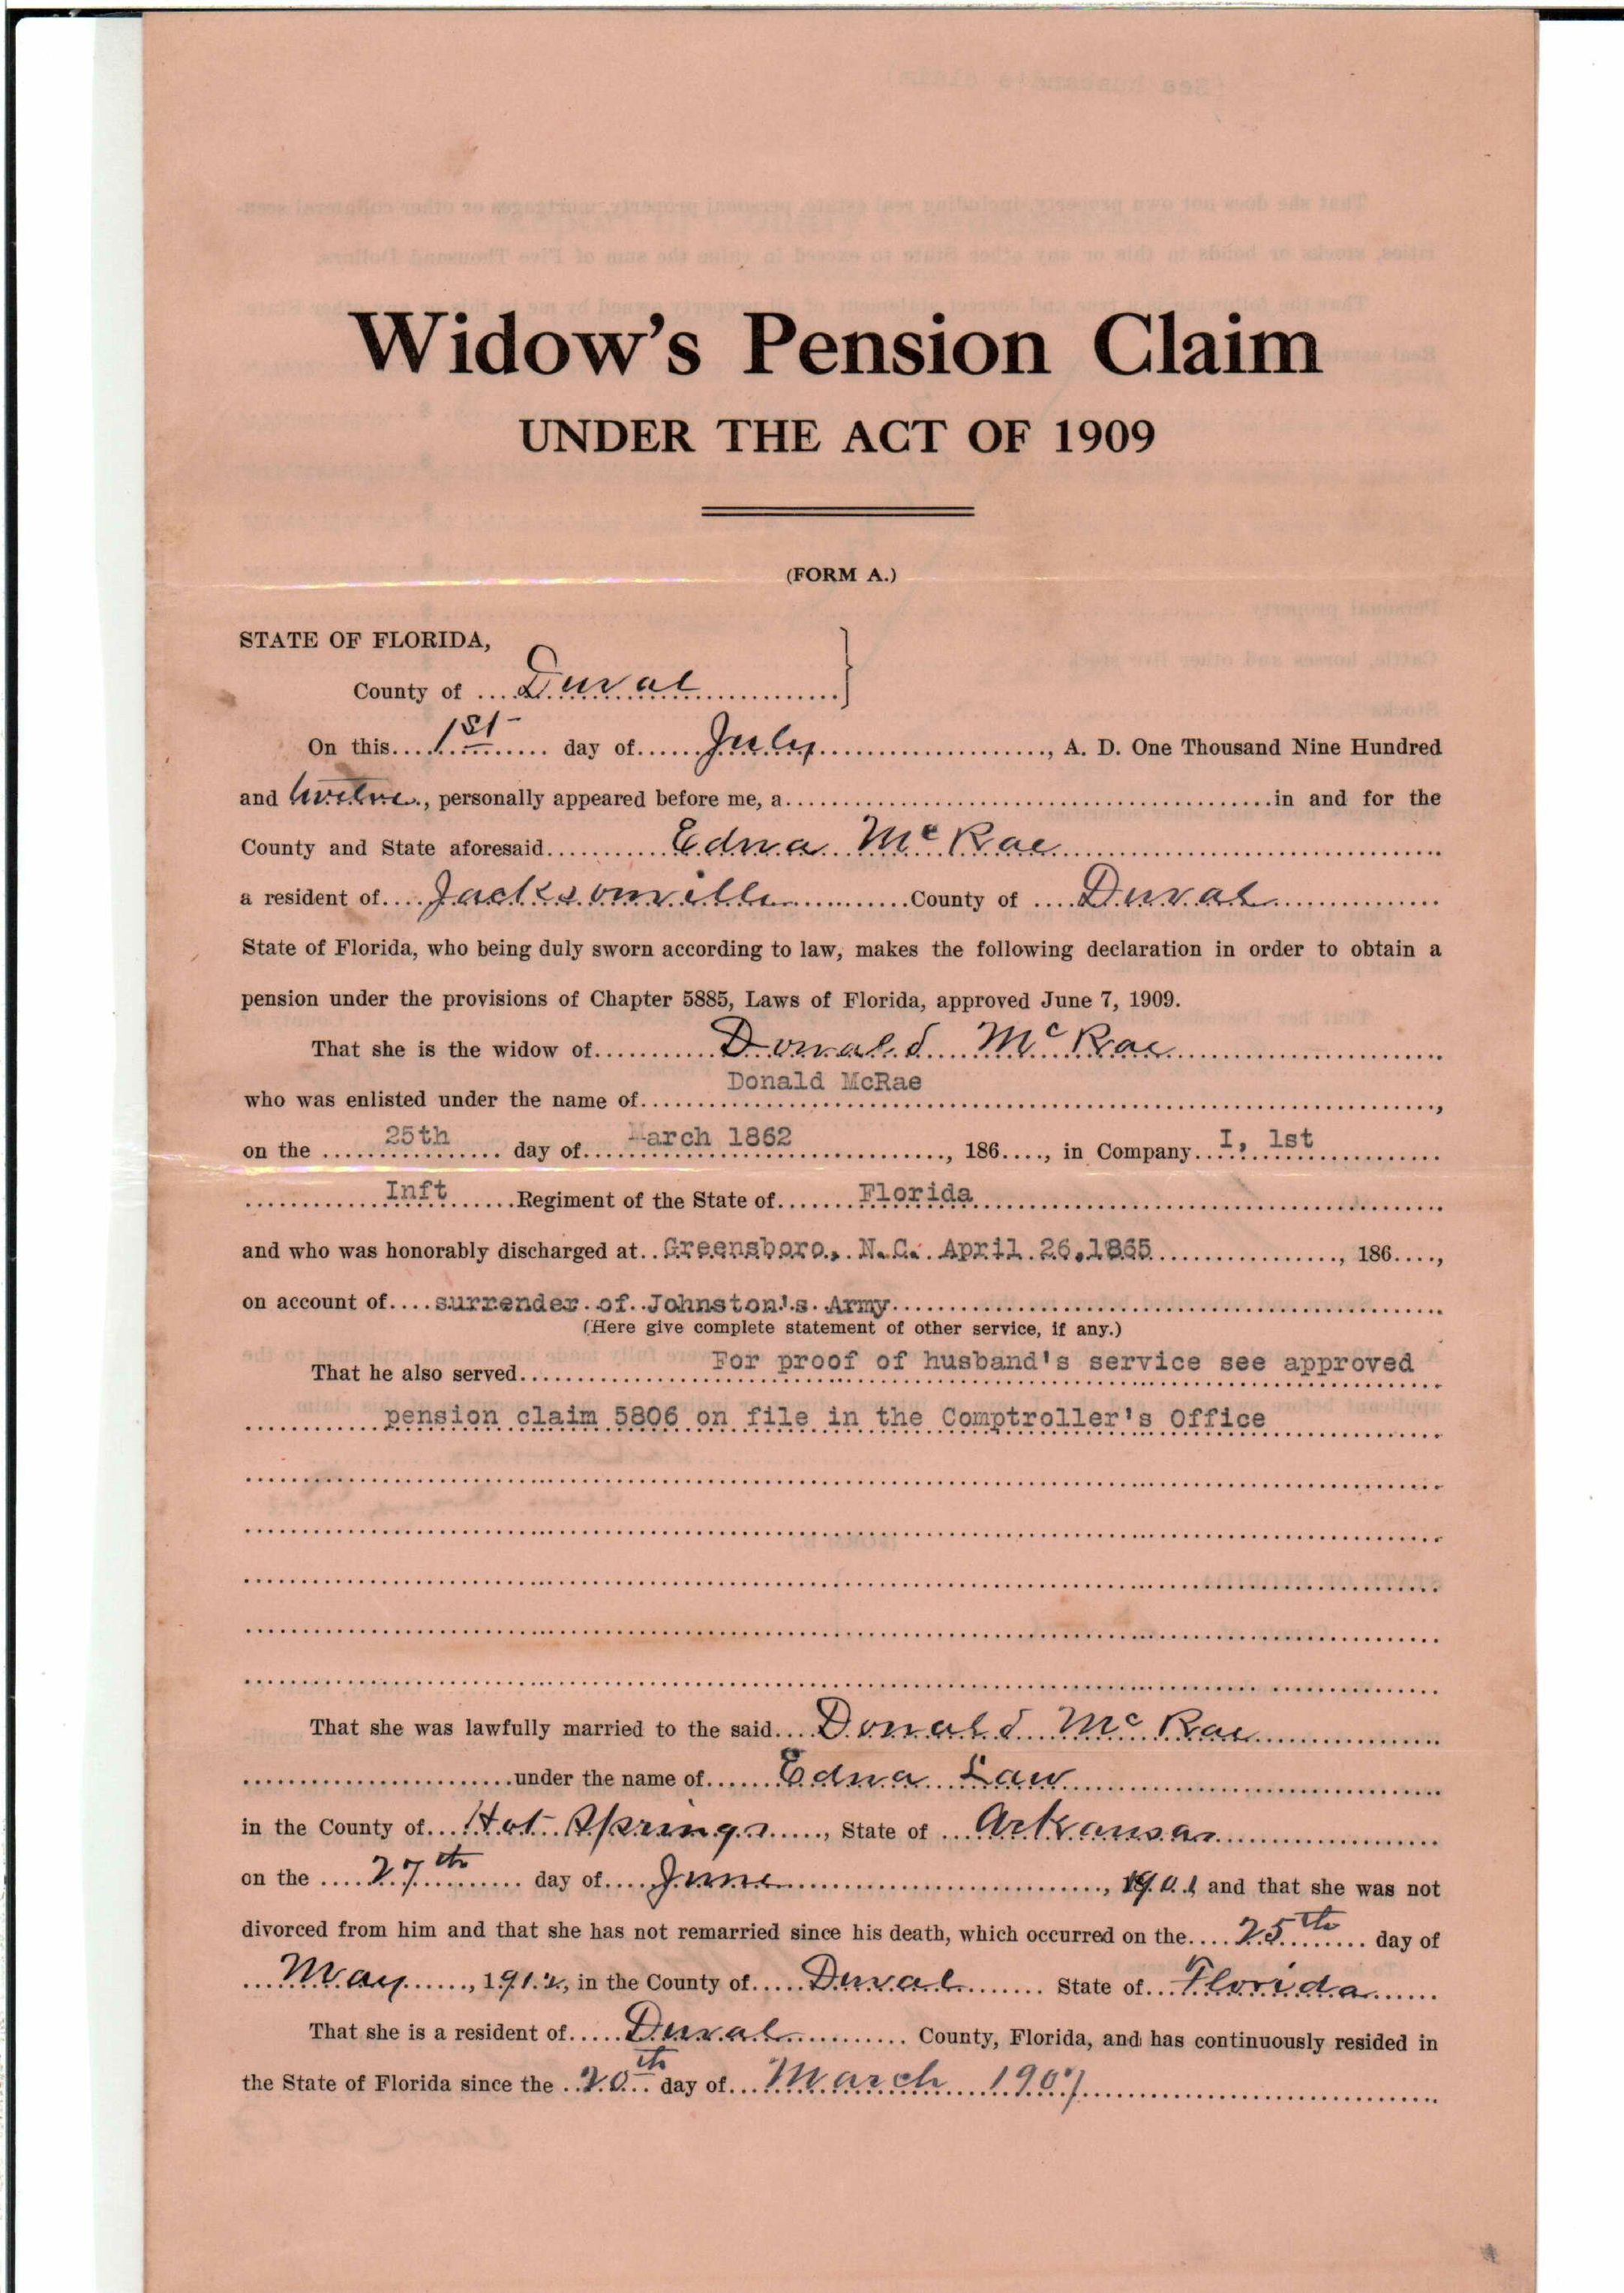 Widow's Pension Claim
UNDER THE ACT OF 1909
(FORM A.)
STATE OF FLORIDA,
County of Duval
On this 1st day of July, A. D. One Thousand Nine Hundred
and twelve, personally appeared before me, a in and for the
County and State aforesaid Edna McRae
a resident of Jacksonville County of Duval
State of Florida, who being duly sworn according to law, makes the following declaration in order to obtain a
pension under the provisions of Chapter 5885, Laws of Florida, approved June 7, 1909.
That she is the widow of Donald McRae
who was enlisted under the name of Donald McRae,
on the 25th day of March 1862, 186...., in Company I, 1st
Inft Regiment of the State of Florida
and who was honorably discharged at Greensboro, N.C. April 26,1865, 186....,
on account of surrender of Johnston's Army
(Here give complete statement of other service, if any.)
That he also served For proof of husband's service see approved
pension claim 5806 on file in the Comptroller's Office
That she was lawfully married to the said Donald McRae
under the name of Edna Law
in the County of Hot Springs, State of Arkansas
on the 27th day of June, 1901, and that she was not
divorced from him and that she has not remarried since his death, which occurred on the 25th day of
May, 1912, in the County of Duval State of Florida
That she is a resident of Duval County, Florida, and has continuously resided in
the State of Florida since the 20th day of March 1907